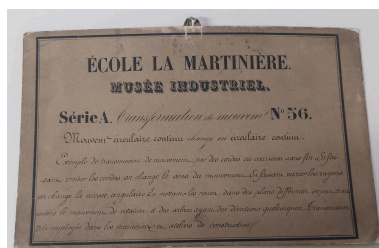 ÉCOLE LA MARTINIÈRE.
MUSÉE INDUSTRIEL.
Série A. Transformation de mouvem^t N° 56.
Mouvem^t circulaire continu changé en circulaire continu.
Exemple de transmission de mouvement par des cordes ou courroies sans fin. Si
croiser les cordes, on change le sens du mouvement. En faisant varier les rayons
on change la vitesse angulaire. En mettant les roues dans des plans différens on peut
le mouvement de rotation à des arbres ayant des directions quelconques. Transmission
très employée dans les et ateliers de construction.